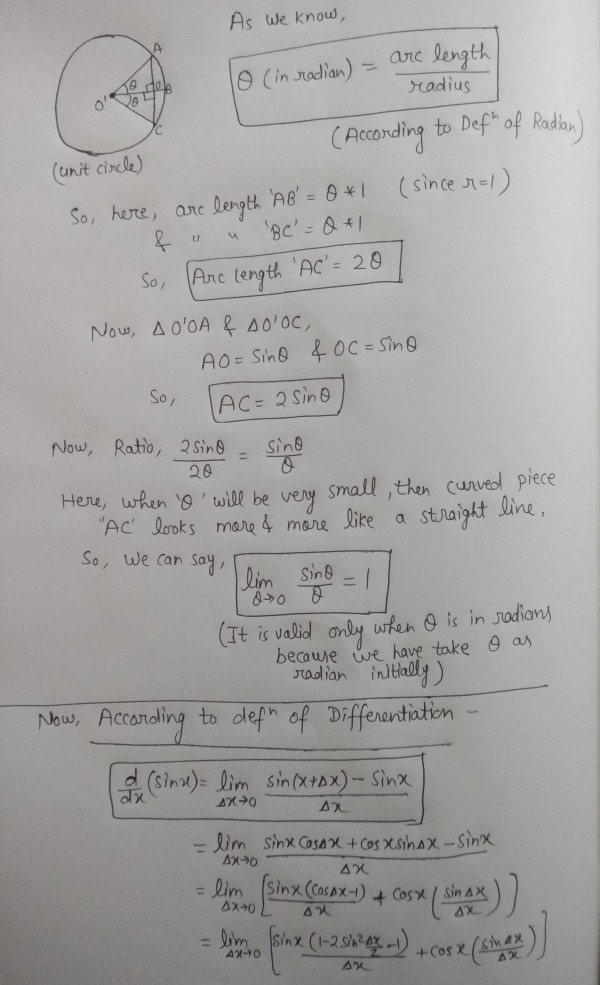 As we know,
A
θ
O
B
O'
θ
C
θ (in radian) = arc length / radius
(According to Defⁿ of Radian)
(unit circle)
So, here, arc length 'AB' = θ * 1 (since r=1)
& " " 'BC' = θ * 1
So, Arc length 'AC' = 2θ
Now, Δ O'OA & Δ O'OC,
AO = Sinθ & OC = Sinθ
So, AC = 2 Sinθ
Now, Ratio, 2 Sinθ / 2θ = Sinθ / θ
Here, when 'θ' will be very small, then curved piece
"AC' looks more & more like a straight line,
So, We can say, lim θ→0 Sinθ / θ = 1
(It is valid only when θ is in radians
because we have take θ as
radian initially)
Now, According to defⁿ of Differentiation -
d/dx (sinx) = lim Δx→0 sin(x+Δx) - Sinx / Δx
= lim Δx→0 sinx CosΔx + cosx sinΔx - sinx / Δx
= lim Δx→0 [ sinx (cosΔx-1) / Δx + Cosx ( sinΔx / Δx ) ]
= lim Δx→0 [ sinx (1-2 sin² Δx/2 -1) / Δx + cosx ( sinΔx / Δx ) ]